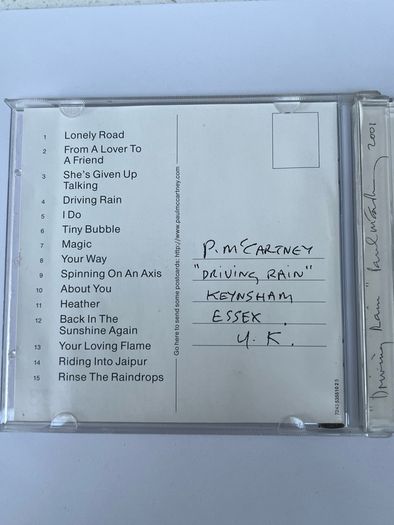 1 Lonely Road
2 From A Lover To
A Friend
3 She's Given Up
Talking
4 Driving Rain
5 I Do
6 Tiny Bubble
7 Magic
8 Your Way
9 Spinning On An Axis
10 About You
11 Heather
12 Back In The
Sunshine Again
13 Your Loving Flame
14 Riding Into Jaipur
15 Rinse The Raindrops
Go here to send some postcards: http://www.paulmccartney.com
P. McCARTNEY
"DRIVING RAIN"
KEYNSHAM
ESSEX.
U.K.
"Driving Rain" Paul McCartney 2001